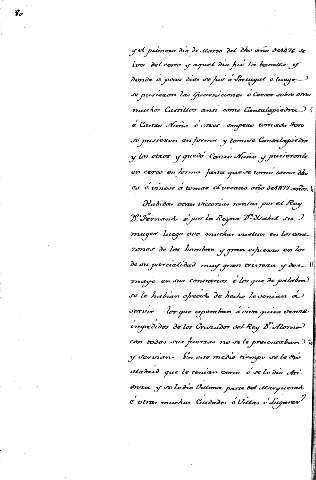 80
y el primero dia de Marzo del dho año de 1476. se
los del cerco y aquel dia fué la batalla, y
dende a pocos dias se fué a Portugal é luego
se pusieron las Guarniciones é Cercos sobre otros
muchos Castillos ansi como Cantalapiedra
é Castro Nuño é otras empero tomada Toro
se pusieron en forma y tomose Cantalapiedra
y los otros y quedó Castro Nuño y pusieronle
en cerco en forma fasta que se tomo como dho
es é vinose a tomar el verano año de 1477. años.
Habidas estas victorias ramtas por el Rey
Dn. Fernando é por la Reyna Da. Isabel su
muger luego ovo muchas vueltas en los cora
zones de los hombres y gran esfuerzo en los
de su parcialidad muy gran tristeza y des
mayo en sus contrarios é los que de palabra
se le habian ofrecido de hecho le venian á
servir los que esperaban á viva quien vence é
impedidos de los Cruzados del Rey Dn. Alonso
con todas sus fuerzas no se le presentaban
y servian. En este medio tiempo se le dio
Madrid que le tenian cerco é se lo dio Ati
enza y se lo dio Villena parte del Marquesado
é otras muchas Ciudades é Villas é Lugares